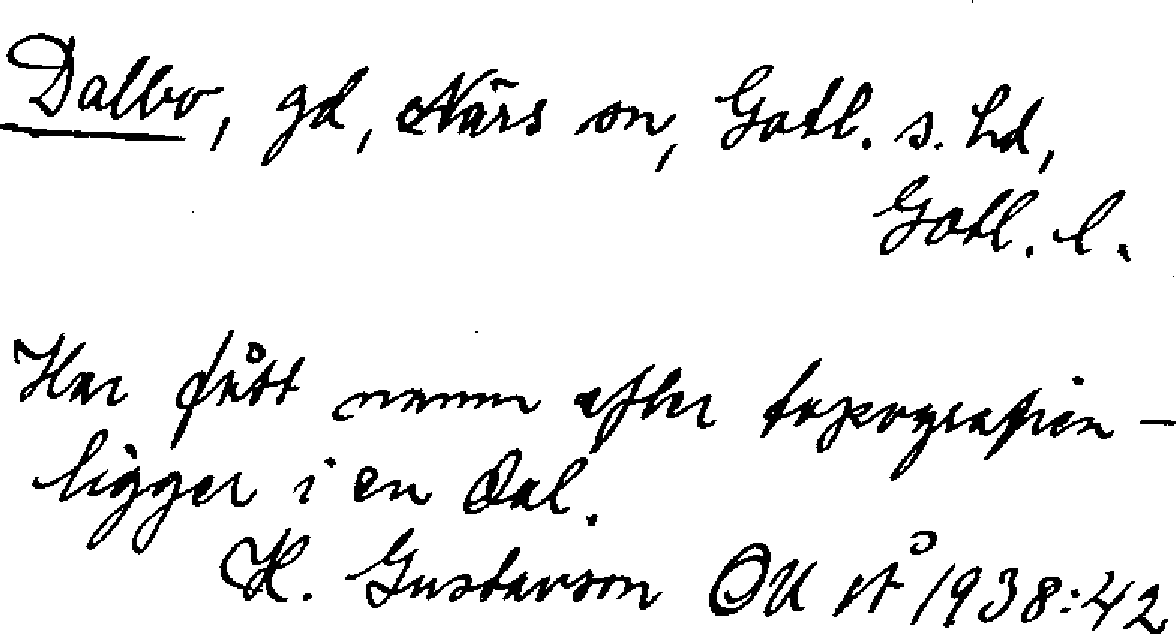 Dalbo, gd, Närs sn, Gotl. s. hd,
Gotl. l.
Har fått namn efter topografien –
ligger i en dal.
H. Gustavson OU 1938:42